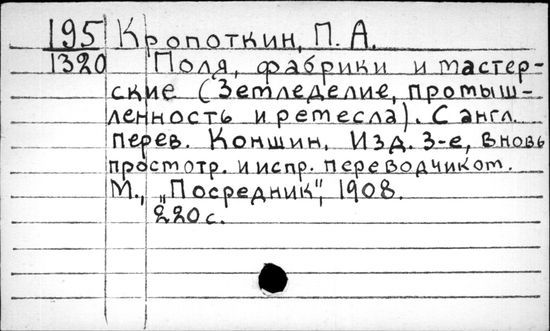 195 Кропоткин, П. А.
1320 Поля, фабрики и мастер-
ские (Земледелие, промыш-
ленность и ремесла). С англ.
перев. Коншин. Изд. 3-е, вновь
просмотр. и испр. переводчиком.
М., „Посредник", 1908.
220 с.